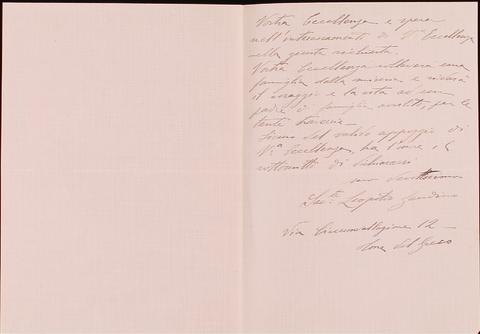 Vostra Eccellenza e spera
nell'interessamento di V. Eccellenza
nella giusta richiesta.
Vostra Eccellenza solleverà una
famiglia dalla miseria e ridarà
il coraggio e la vita ad un
padre di famiglia avvilito, per le
tante traversie
Sicuro del valido appoggio di
Va Eccellenza, ha l'onore, e
sottometti di dichiararsi
suo Devotissimo
Leopoldo
Via Circumvallazione 12
Torre del Greco